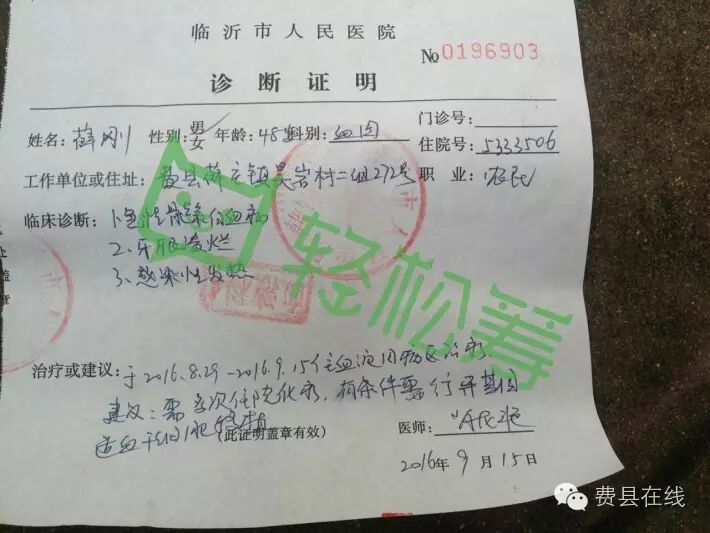 临沂市人民医院
No 0196903
诊断证明
门诊号:
姓名: 薛刚 性别: 男 女 年龄: 48 科别: 血内
住院号: 5333506
工作单位或住址: 费县薛庄镇 岩村二组272号 职业: 农民
临床诊断: 1. 急性髓系白血病
2. 牙龈溃烂
3. 感染性发热
轻松筹
治疗或建议: 于2016.8.29-2016.9.15住血液内科 治疗.
建议: 需多次住院化疗, 有条件需行异基因
造血干细胞移植
(此证明盖章有效)
医师:
2016年9月15日
费县在线